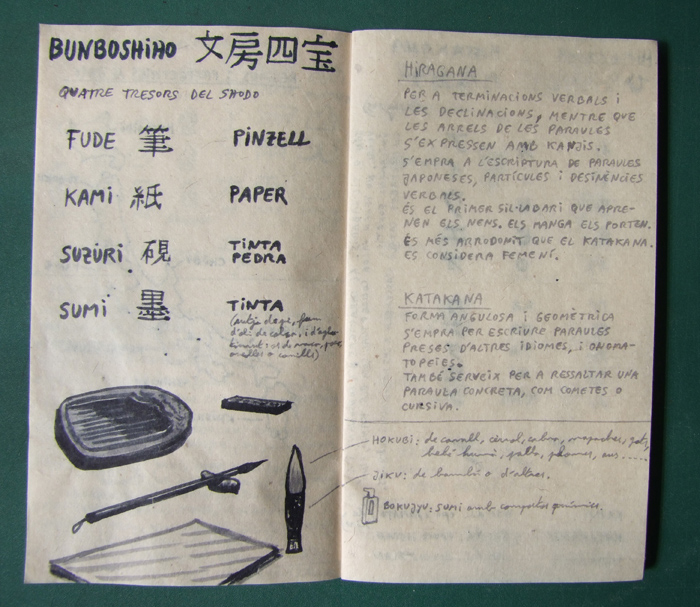 BUNBOSHIHO 文房四宝
QUATRE TRESORS DEL SHODO
FUDE 筆 PINZELL
KAMI 紙 PAPER
SUZURI 硯 TINTA PEDRA
SUMI 墨 TINTA
HIRAGANA
PER A TERMINACIONS VERBALS I
LES DECLINACIONS, MENTRE QUE
LES ARRELS DE LES PARAULES
S'EXPRESSEN AMB KANJIS.
S'EMPRA A L'ESCRIPTURA DE PARAULES
JAPONESES, PARTÍCULES I DESINÈNCIES
VERBALS.
ÉS EL PRIMER SIL·LABARI QUE APRE-
NEN ELS NENS. ELS MANGA ELS PORTEN.
ÉS MÉS ARRODONIT QUE EL KATAKANA.
ES CONSIDERA FEMENÍ.
KATAKANA
FORMA ANGULOSA I GEOMÈTRICA
S'EMPRA PER ESCRIURE PARAULES
PRESES D'ALTRES IDIOMES, I ONOMA-
TOPEIES.
TAMBÉ SERVEIX PER A RESSALTAR UNA
PARAULA CONCRETA, COM COMETES O
CURSIVA.
HOKUBI: de cavall, cérvol, cabra, mapaches, gat,
plomes,
JIKU: de bambú o d'altres.
BOKUJU: SUMI amb compostos químics.